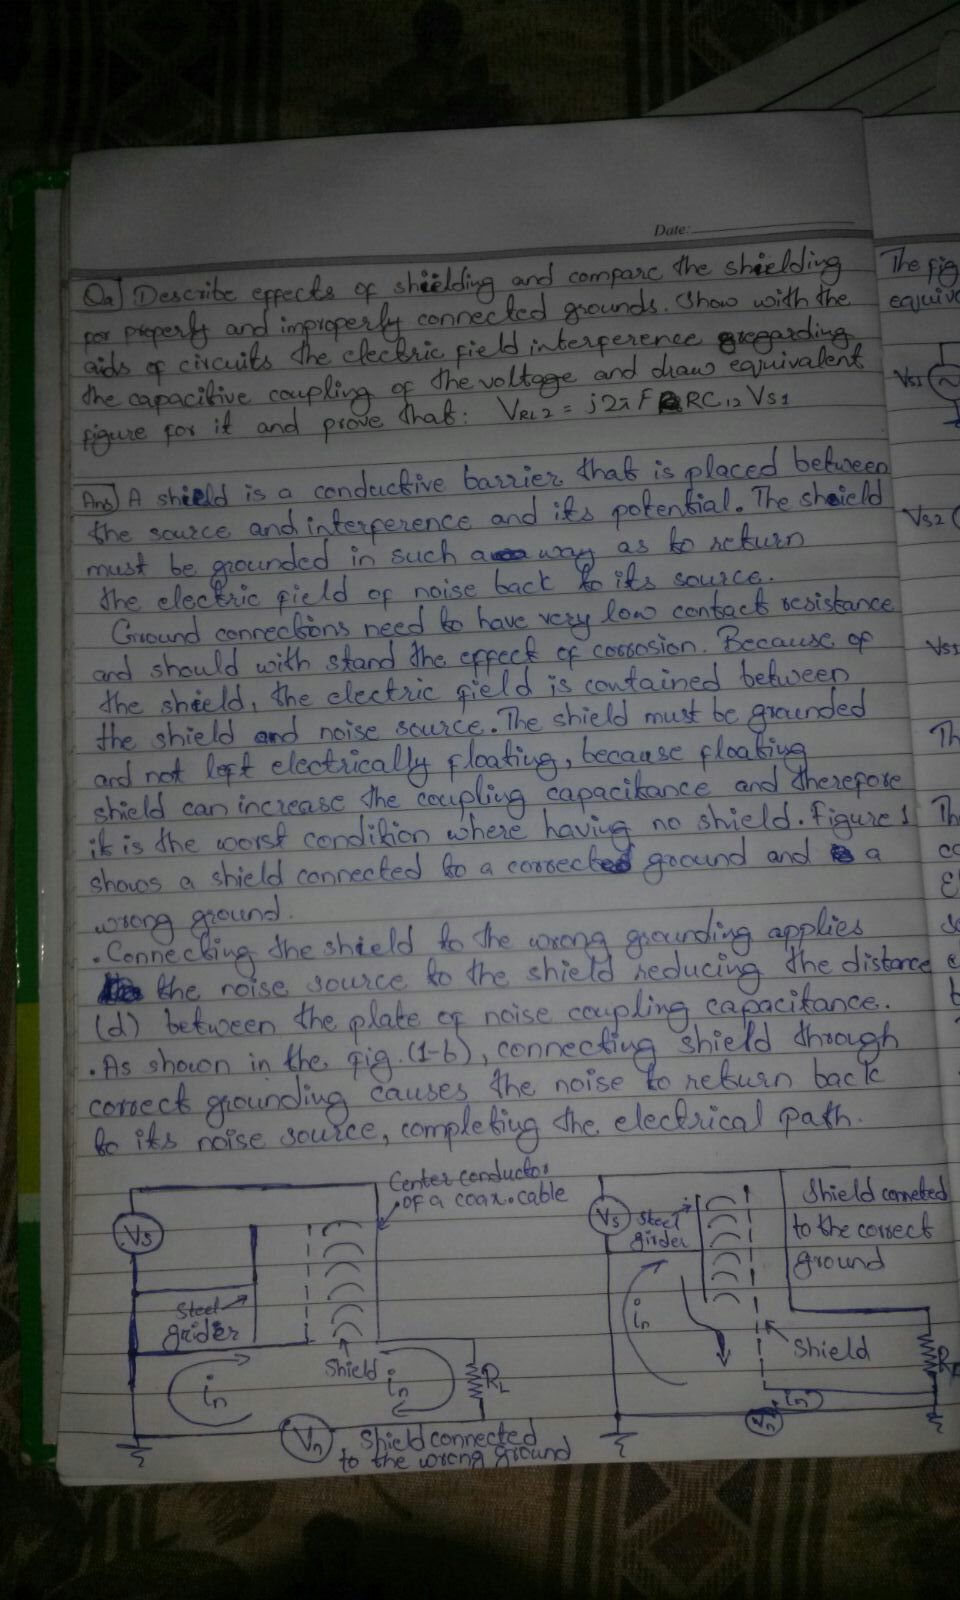 Date:
Qa] Describe effects of shielding and compare the shielding
for properly and improperly connected grounds. Show with the
aids of circuits the electric field interference regarding
the capacitive coupling of the voltage and draw equivalent
figure for it and prove that: VRL2 = j2π F RC12 VS1
Ans] A shield is a conductive barrier that is placed between
the source and interference and its potential. The shield
must be grounded in such a way as to return
the electric field of noise back to its source.
Ground connections need to have very low contact resistance
and should with stand the effect of corrosion. Because of
the shield, the electric field is contained between
the shield and noise source. The shield must be grounded
and not left electrically floating, because floating
shield can increase the coupling capacitance and therefore
it is the worst condition where having no shield. Figure 1
shows a shield connected to a correct ground and a
wrong ground.
. Connecting the shield to the wrong grounding applies
the noise source to the shield reducing the distance
(d) between the plate of noise coupling capacitance.
. As shown in the fig. (1-b), connecting shield through
correct grounding causes the noise to return back
to its noise source, completing the electrical path.
Center conductor
of a coax. cable
Vs
Steel
grider
Shield
in
in
RL
Vn
Shield connected
to the wrong ground
Vs
Steel
girder
Shield conneted
to the correct
ground
in
Shield
in
Vn
The fig
equiv
Vs1
Vs2
Vs1
Th
Th
co